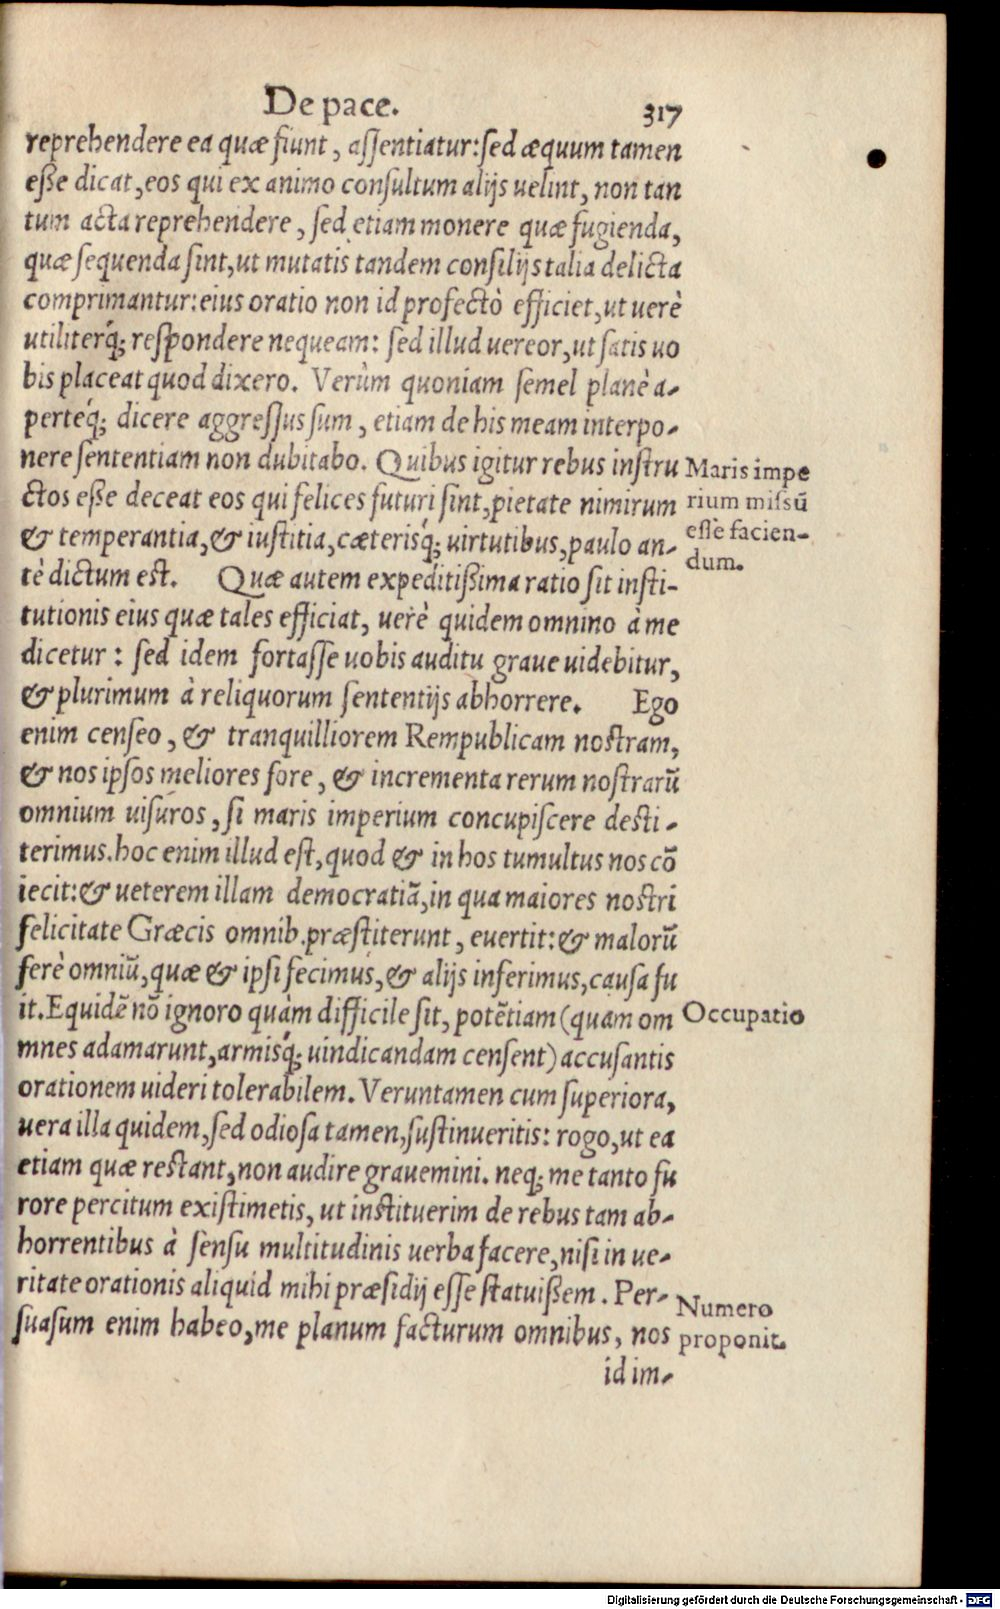 De pace. 317
reprehendere ea quæ fiunt, aſſentiatur: ſed æquum tamen
eſſe dicat, eos qui ex animo conſultum alijs uelint, non tan
tum acta reprehendere, ſed etiam monere quæ fugienda,
quæ ſequenda ſint, ut mutatis tandem conſilijs talia delicta
comprimantur: eius oratio non id profectò efficiet, ut uerè
utiliterq́; reſpondere nequeam: ſed illud uereor, ut ſatis uo
bis placeat quod dixero. Verùm quoniam ſemel planè a-
perteq́; dicere aggreſſus ſum, etiam de his meam interpo-
nere ſententiam non dubitabo. Quibus igitur rebus inſtru
ctos eſſe deceat eos qui felices futuri ſint, pietate nimirum
& temperantia, & iuſtitia, cæterisq́; uirtutibus, paulo an-
tè dictum eſt. Quæ autem expeditißima ratio ſit inſti-
tutionis eius quæ tales efficiat, uerè quidem omnino à me
dicetur: ſed idem fortaſſe uobis auditu graue uidebitur,
& plurimum à reliquorum ſententijs abhorrere. Ego
enim cenſeo, & tranquilliorem Rempublicam noſtram,
& nos ipſos meliores fore, & incrementa rerum noſtrarũ
omnium uiſuros, ſi maris imperium concupiſcere deſti-
terimus. hoc enim illud eſt, quod & in hos tumultus nos cõ
iecit: & ueterem illam democratiã, in qua maiores noſtri
felicitate Græcis omnib. præſtiterunt, euertit: & malorũ
ferè omniũ, quæ & ipſi fecimus, & alijs inferimus, cauſa fu
it. Equidẽ nõ ignoro quàm difficile ſit, potẽtiam (quam om
mnes adamarunt, armisq́; uindicandam cenſent) accuſantis
orationem uideri tolerabilem. Veruntamen cum ſuperiora,
uera illa quidem, ſed odioſa tamen, ſuſtinueritis: rogo, ut ea
etiam quæ reſtant, non audire grauemini. neq; me tanto fu
rore percitum exiſtimetis, ut inſtituerim de rebus tam ab-
horrentibus à ſenſu multitudinis uerba facere, niſi in ue-
ritate orationis aliquid mihi præſidij eſſe ſtatuißem. Per-
ſuaſum enim habeo, me planum facturum omnibus, nos
id im-
Maris impe
rium miſsũ
eſſe facien-
dum.
Occupatio
Numero
proponit.
Digitalisierung gefördert durch die Deutsche Forschungsgemeinschaft - DFG